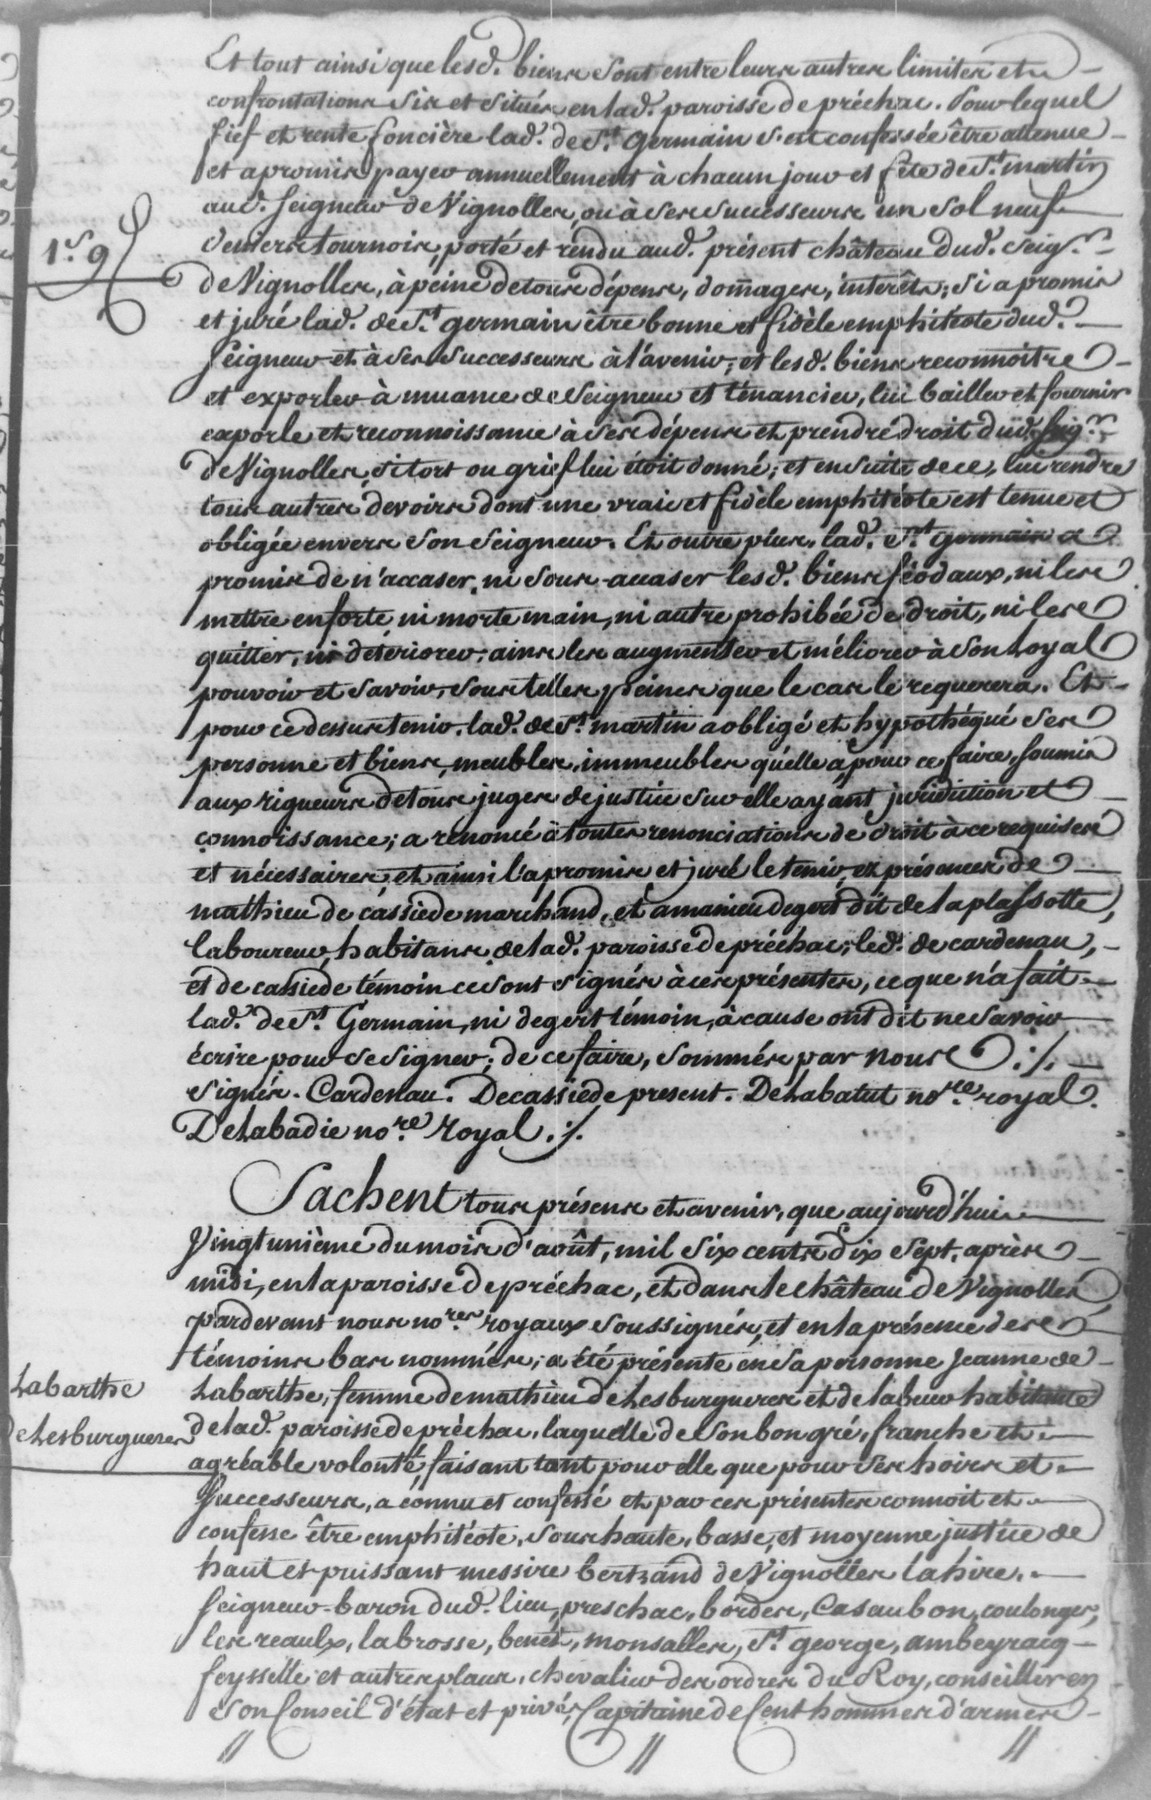 Et tout ainsi que lesd. biens sont entre leurs autres limites et
confrontations sis et situés en lad. paroisse de préchac. Pour lequel
fief et rente foncière lad. de St. Germain s'est confessée être attenue
et a promis payer annuellement à chacun jour et fête de St. martin
aud. seigneur de Vignolles, ou à ses successeurs un sol neuf
1s. 9d
deniers tournois, porté et rendu aud. présent château dud. seigr.
de Vignolles, à peine de tous dépens, dommages, intérêts; si a promis
et juré lad. de St. germain être bonne et fidèle emphitéote dud.
seigneur et à ses successeurs à l'avenir; et lesd. biens reconnoitre
et exporler à muance de seigneur et tenancier, lui bailler et fournir
exporle et reconnoissance à ses dépens et prendre droit dud. seigr.
de Vignolles, si tort ou grief lui étoit donné; et ensuite de ce, lui rendre
tous autres devoirs dont une vraie et fidèle emphitéote est tenue et
obligée envers son seigneur. Et outre plus, lad. St. germain a
promis de n'accaser, ni sous-accaser lesd. biens féodaux, ni les
mettre en forte, ni morte main, ni autre prohibée de droit, ni les
quitter, ni détériorer; ains les augmenter et méliorer à son loyal
pouvoir et savoir, sous telles peines que le cas le requerera. Et
pour ce dessus tenir, lad. de St. martin a obligé et hypothéqué ses
personne et biens, meubles, immeubles qu'elle a, pour ce faire, soumis
aux rigueurs de tous juges de justice sur elle ayant juridiction et
connoissance; a renoncé à toutes renonciations de droit à ce requises
et nécessaires, et ainsi l'a promis et juré le tenir, ez présences de
mathieu de cassiede marchand, et amanieu degert dit de laplassotte,
laboureur, habitans de lad. paroisse de préchac; led. de cardenau,
et de cassiede témoin ce sont signés à ces présentes, ce que n'a fait
lad. de St. Germain, ni degert témoin, à cause ont dit ne savoir
écrire pour se signer; de ce faire, sommés par nous ./.
signés. Cardenau. Decassiede present. Delabatut nore. royal.
Delabadie nore. royal ./.
Sachent tous présens et avenir, que aujourd'hui
Vingtunième du mois d'août, mil six cents dix sept, après
midi, en la paroisse de préchac, et dans le château de Vignolles
pardevant nous nores. royaux soussignés, et en la présence des
témoins bas nommés; a été présente en sa personne Jeanne de
Labarthe
de Lesburgueres
Labarthe, femme de mathieu de Lesburgueres et de labeur habitante
de lad. paroisse de préchac, laquelle de son bon gré, franche et
agréable volonté, faisant tant pour elle que pour ses hoirs et
successeurs, a connu et confessé et par ces présentes connoit et
confesse être emphitéote, sous haute, basse, et moyenne justice de
haut et puissant messire bertrand de Vignolles lahire,
seigneur baron dud. lieu, preschac, bordes, Casaubon, coulonges,
les reaulx, labrosse, benet, monsalles, St. george, ambeyracq
feysselle et autres places, chevalier des ordres du Roy, conseiller en
son Conseil d'état et privé, Capitaine de Cent hommes d'armes